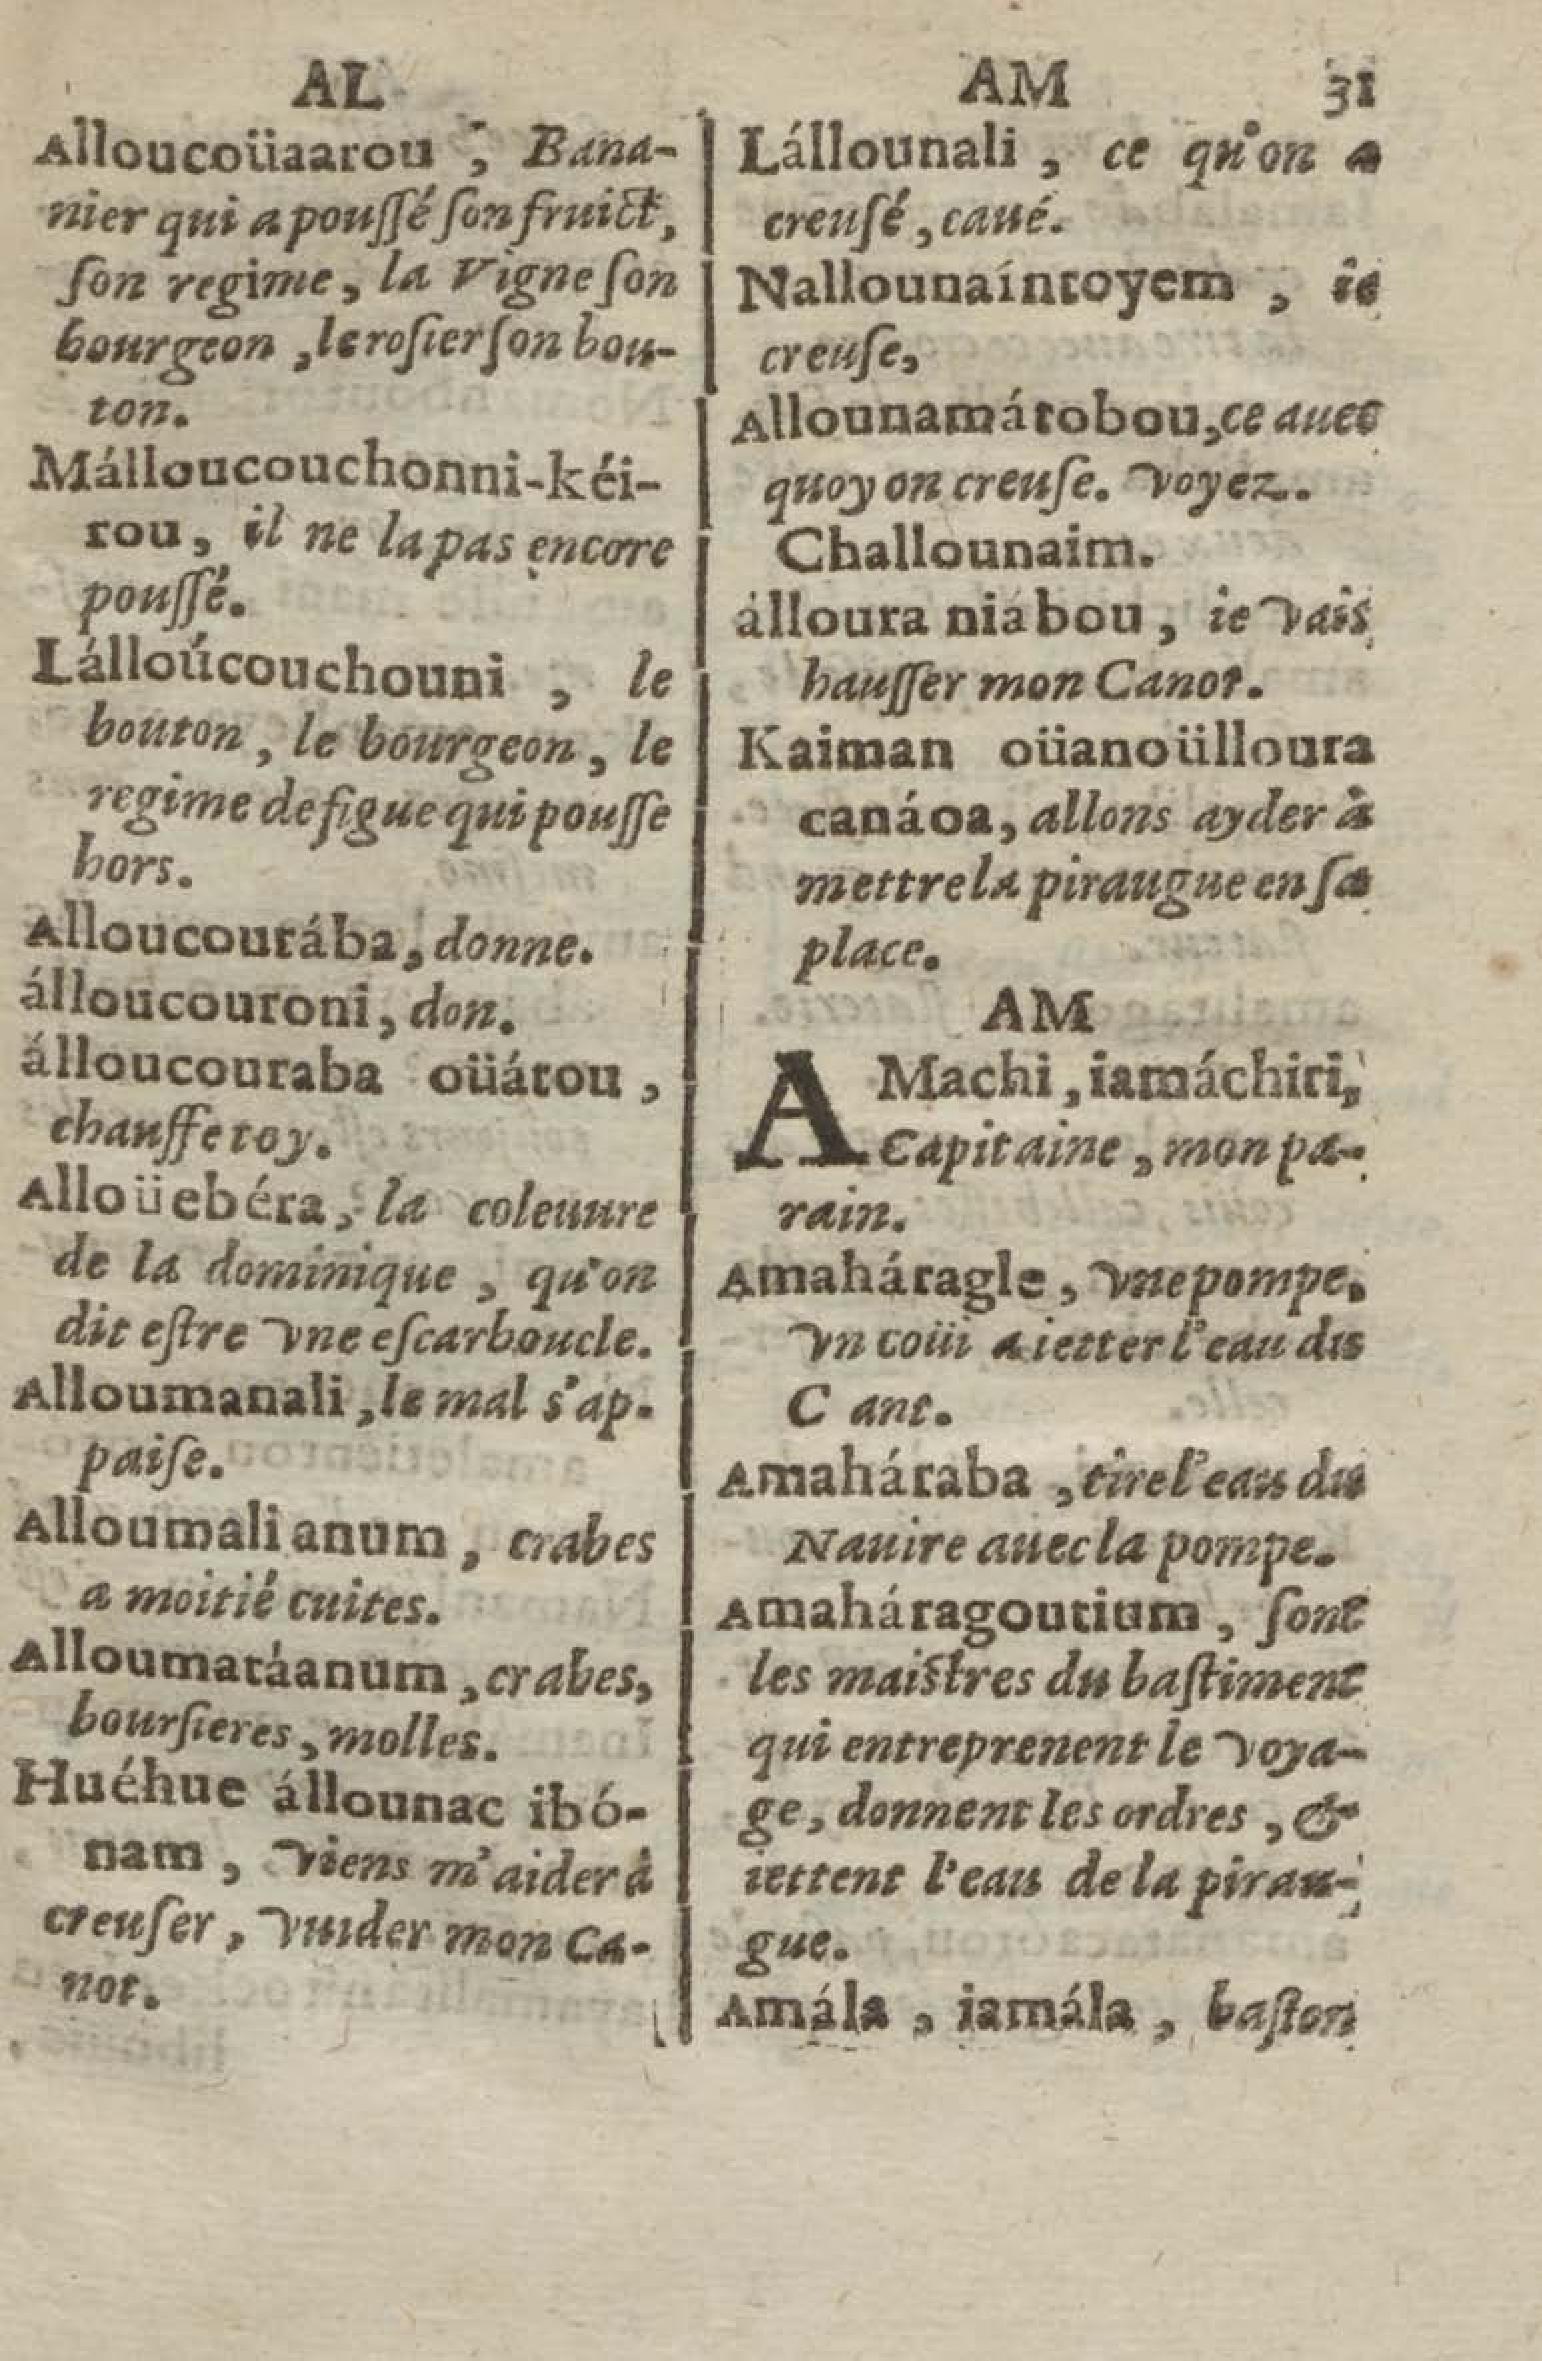 AL
Alloucoüaarou, Bana-
nier qui a pouſſé ſon fruict,
ſon regime, la Vigne ſon
bourgeon, le roſier ſon bou-
ton.
Málloucouchonni-kéi-
rou, il ne la pas encore
pouſſé.
Lálloúcouchouni, le
bouton, le bourgeon, le
regime de figue qui pouſſe
hors.
Alloucourába, donne.
álloucouroni, don.
álloucouraba oüátou,
chauffe toy.
Alloüebéra, la coleuure
de la dominique, qu'on
dit eſtre vne eſcarboucle.
Alloumanali, le mal s'ap-
paiſe.
Alloumali anum, crabes
a moitié cuites.
Alloumatáanum, crabes,
bourſieres, molles.
Huéhue állounac ibó-
nam, viens m'aider à
creuſer, vuider mon Ca-
not.
AM 31
Lállounali, ce qu'on a
creuſé, caué.
Nallounaíntoyem, ie
creuſe,
Allounamátobou, ce auec
quoy on creuſe. voyez.
Challounaim.
álloura niabou, ie vais
hauſſer mon Canot.
Kaiman oüanoülloura
canáoa, allons ayder à
mettre la piraugue en ſa
place.
AM
AMachi, iamáchiri,
Capitaine, mon pa-
rain.
Amaháragle, vne pompe,
vn coüi a ietter l'eau du
C ant.
Amaháraba, tire l'eau du
Nauire auec la pompe.
Amaháragoutium, ſont
les maiſtres du baſtiment
qui entreprenent le voya-
ge, donnent les ordres, &
iettent l'eau de la pirau-
gue.
Amála, iamála, baſton